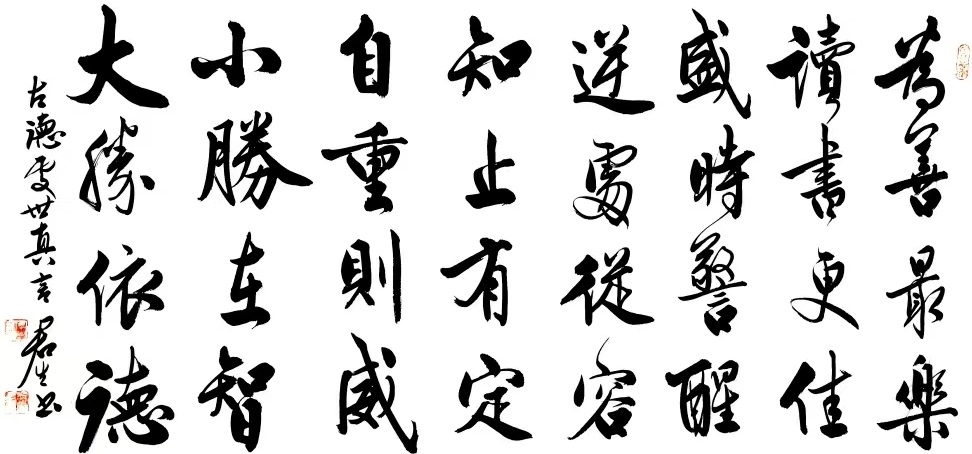 為善最樂
讀書更佳
盛時警醒
逆處從容
知止有定
自重則威
小勝在智
大勝依德
古德處世真言 君生書